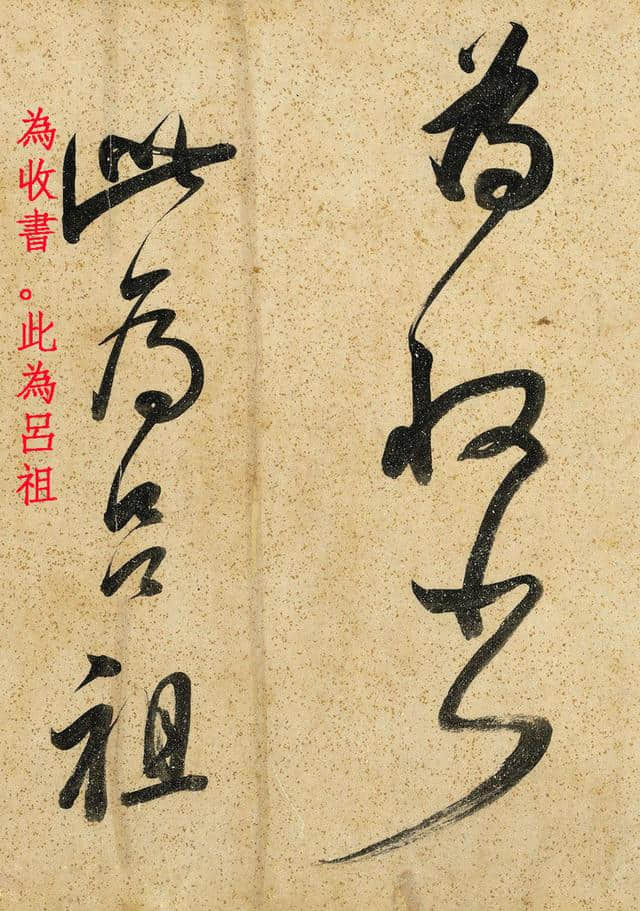 為收書
此為呂祖
為收書。此為呂祖